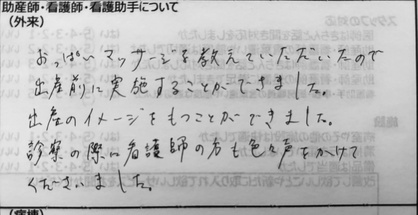 助産師・看護師・看護助手について
（外来）
おっぱいマッサージを教えていただいたので
出産前に実施することができました。
出産のイメージをもつことができました。
診察の際に看護師の方も色々声をかけて
くださいました。
（病棟）